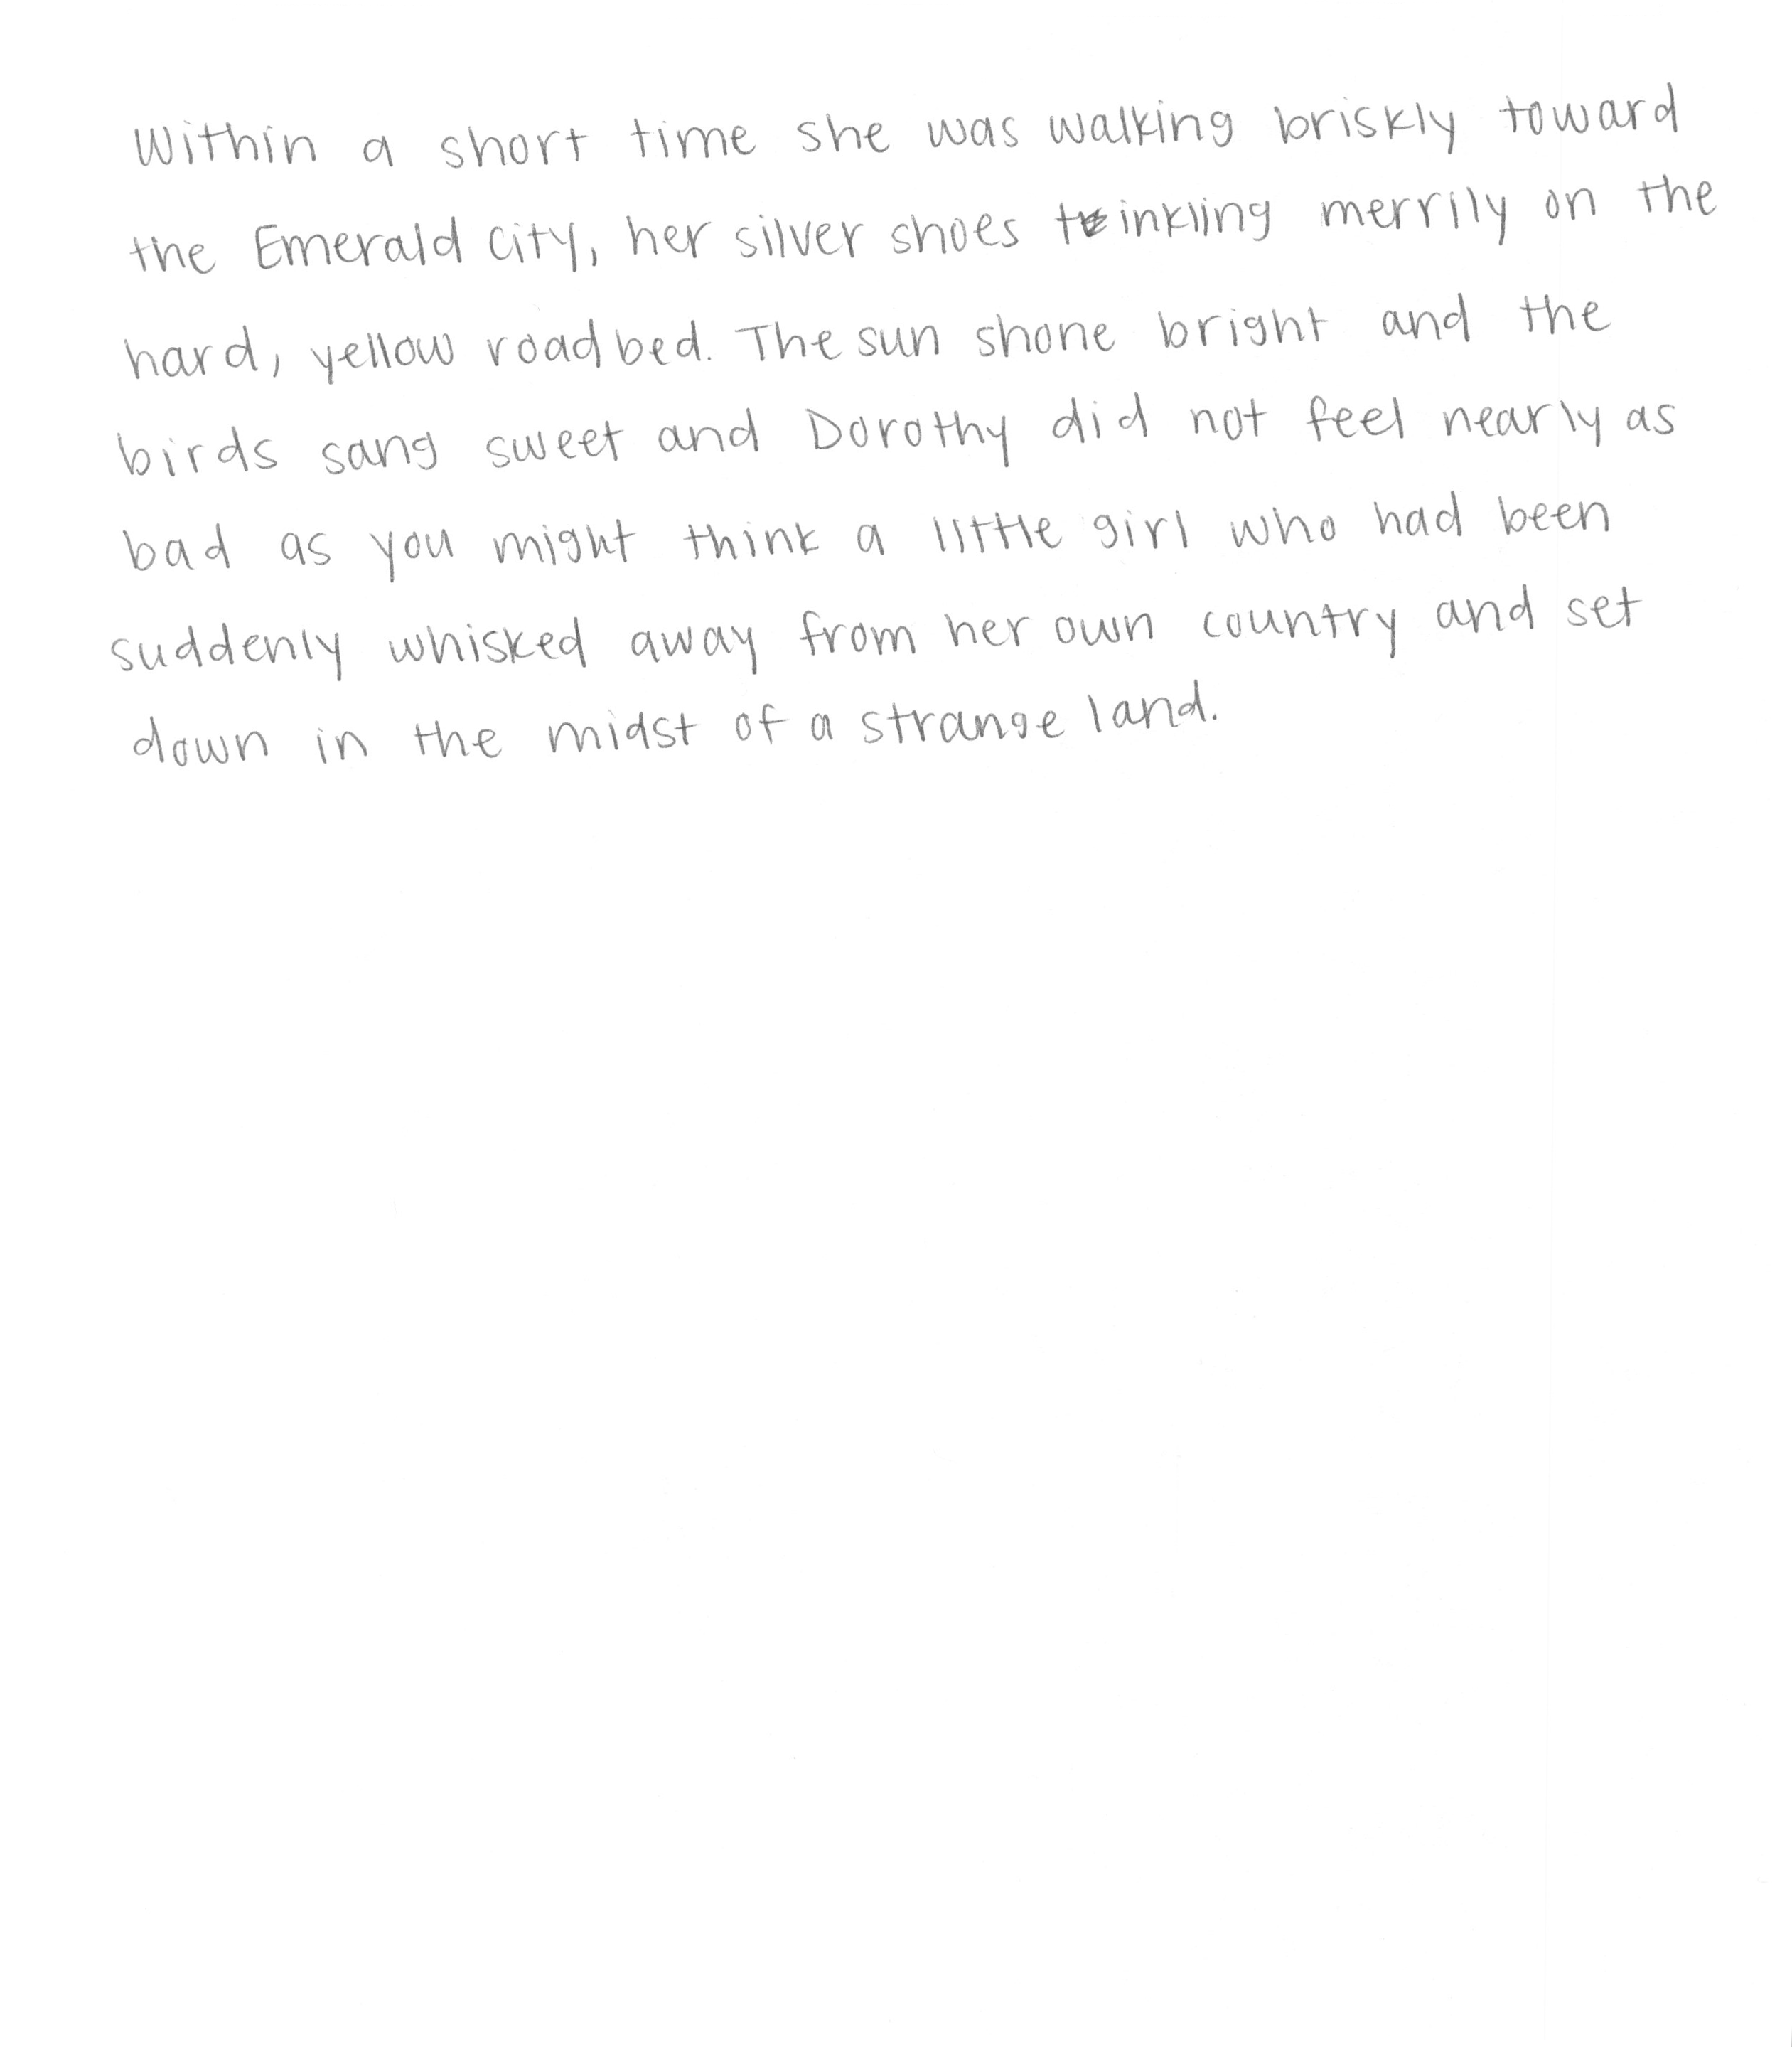 Within a short time she was walking briskly toward
the Emerald City, her silver shoes tinkling merrily on the
hard, yellow roadbed. The sun shone bright and the
birds sang sweet and Dorothy did not feel nearly as
bad as you might think a little girl who had been
suddenly whisked away from her own country and set
down in the midst of a strange land.